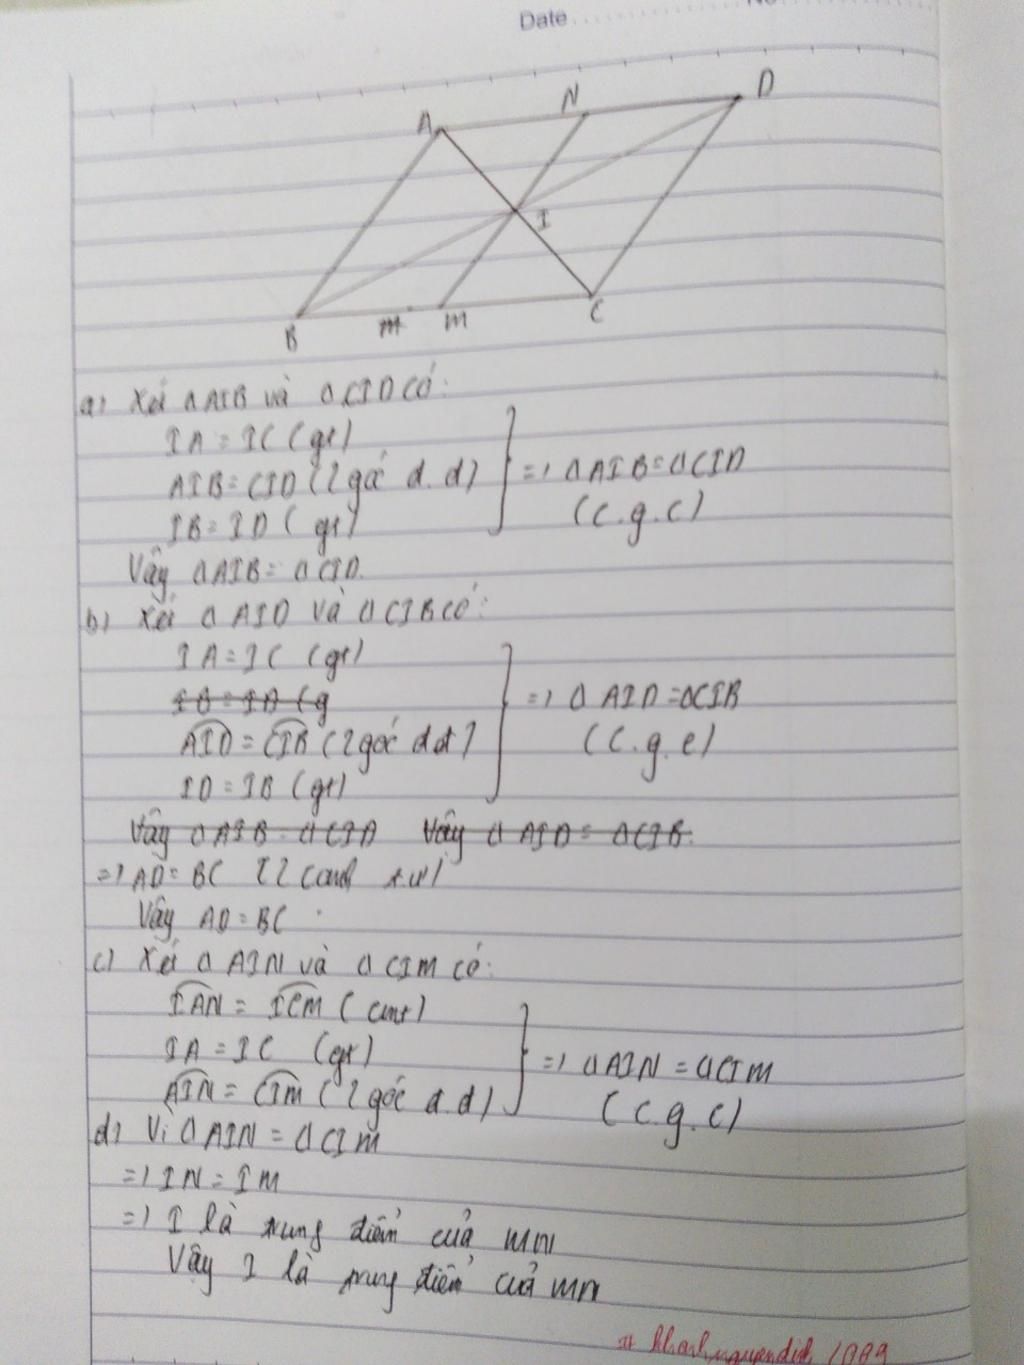 Date
No
A
N
D
I
B
m
M
C
a) Xét ΔAIB và ΔCID có:
IA = IC (gt)
AIB = CID (2 góc đ.đ)
IB = ID (gt)
=> ΔAIB = ΔCID
(c.g.c)
Vậy ΔAIB = ΔCID.
b) Xét Δ AID và ΔCIB có:
IA = IC (gt)
AID = CIB (2 góc đđ)
ID = IB (gt)
=> Δ AID = ΔCIB
(c.g.c)
Vậy ΔAIB = ΔCID Vậy ΔAID = ΔCIB.
=> AD = BC (2 cạnh t.ư)
Vậy AD = BC.
c) Xét Δ AIN và ΔCIM có:
IAN = ICM (cmt)
IA = IC (gt)
AIN = CIM (2 góc đ.đ)
=> ΔAIN = ΔCIM
(c.g.c)
d) Vì ΔAIN = ΔCIM
=> IN = IM
=> I là trung điểm của MN
Vậy I là trung điểm của MN